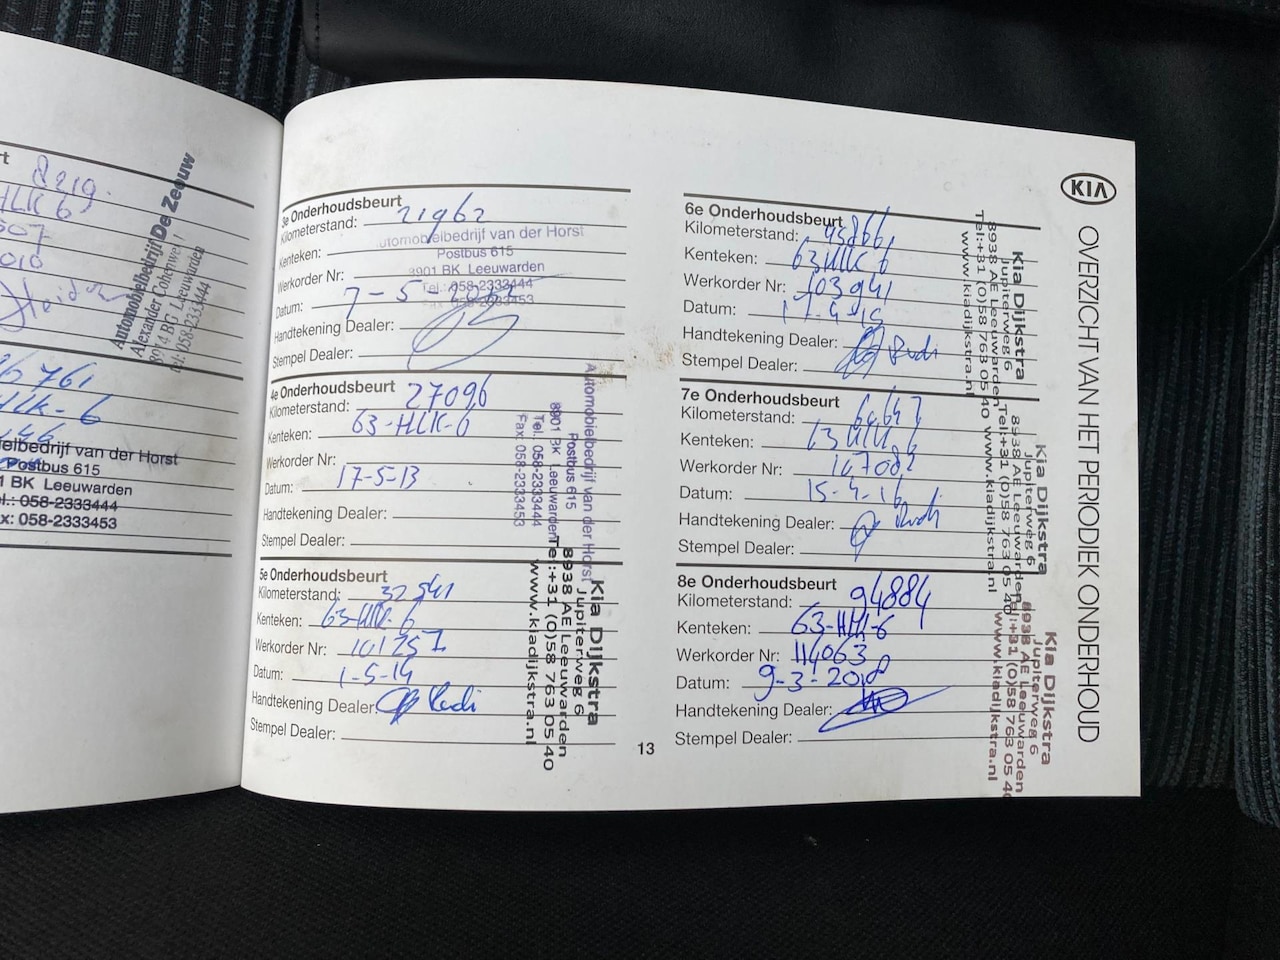 8219.
HLK 6
Automobielbedrijf De Zeeuw
Alexander Cohenwei 1
8914 BG Leeuwarden
tel: 058-2333444
761
HLK-6
elbedrijf van der Horst
Postbus 615
01 BK Leeuwarden
el.: 058-2333444
x: 058-2333453
3e Onderhoudsbeurt
Kilometerstand: 21962
Kenteken:
Werkorder Nr:
Datum: 7-5
Handtekening Dealer:
Stempel Dealer:
Automobielbedrijf van der Horst
Postbus 615
8901 BK Leeuwarden
Tel.: 058-2333444
Fax: 058-2333453
4e Onderhoudsbeurt
Kilometerstand: 27096
Kenteken: 63-HLK-6
Werkorder Nr:
Datum: 17-5-13
Handtekening Dealer:
Stempel Dealer:
Automobielbedrijf van der Horst
Postbus 615
8901 BK Leeuwarden
Tel.: 058-2333444
Fax: 058-2333453
5e Onderhoudsbeurt
Kilometerstand: 32541
Kenteken: 63-HLK-6
Werkorder Nr: 101257
Datum: 1-5-14
Handtekening Dealer: Rudi
Stempel Dealer:
Kia Dijkstra
Jupiterweg 6
8938 AE Leeuwarden
Tel:+31 (0)58 763 05 40
www.kiadijkstra.nl
13
6e Onderhoudsbeurt
Kilometerstand: 45866
Kenteken: 63HLK-6
Werkorder Nr: 103941
Datum: 17-4-15
Handtekening Dealer: Rudi
Stempel Dealer:
Kia Dijkstra
Jupiterweg 6
8938 AE Leeuwarden
Tel:+31 (0)58 763 05 40
www.kiadijkstra.nl
7e Onderhoudsbeurt
Kilometerstand:
Kenteken: 63 HLK 6
Werkorder Nr:
Datum: 15-4-16
Handtekening Dealer: Rudi
Stempel Dealer:
Kia Dijkstra
Jupiterweg 6
8938 AE Leeuwarden
Tel:+31 (0)58 763 05 40
www.kiadijkstra.nl
8e Onderhoudsbeurt
Kilometerstand: 94884
Kenteken: 63-HLK-6
Werkorder Nr: 114063
Datum: 9-3-2018
Handtekening Dealer:
Stempel Dealer:
Kia Dijkstra
Jupiterweg 6
8938 AE Leeuwarden
Tel:+31 (0)58 763 05 40
www.kiadijkstra.nl
KIA
OVERZICHT VAN HET PERIODIEK ONDERHOUD